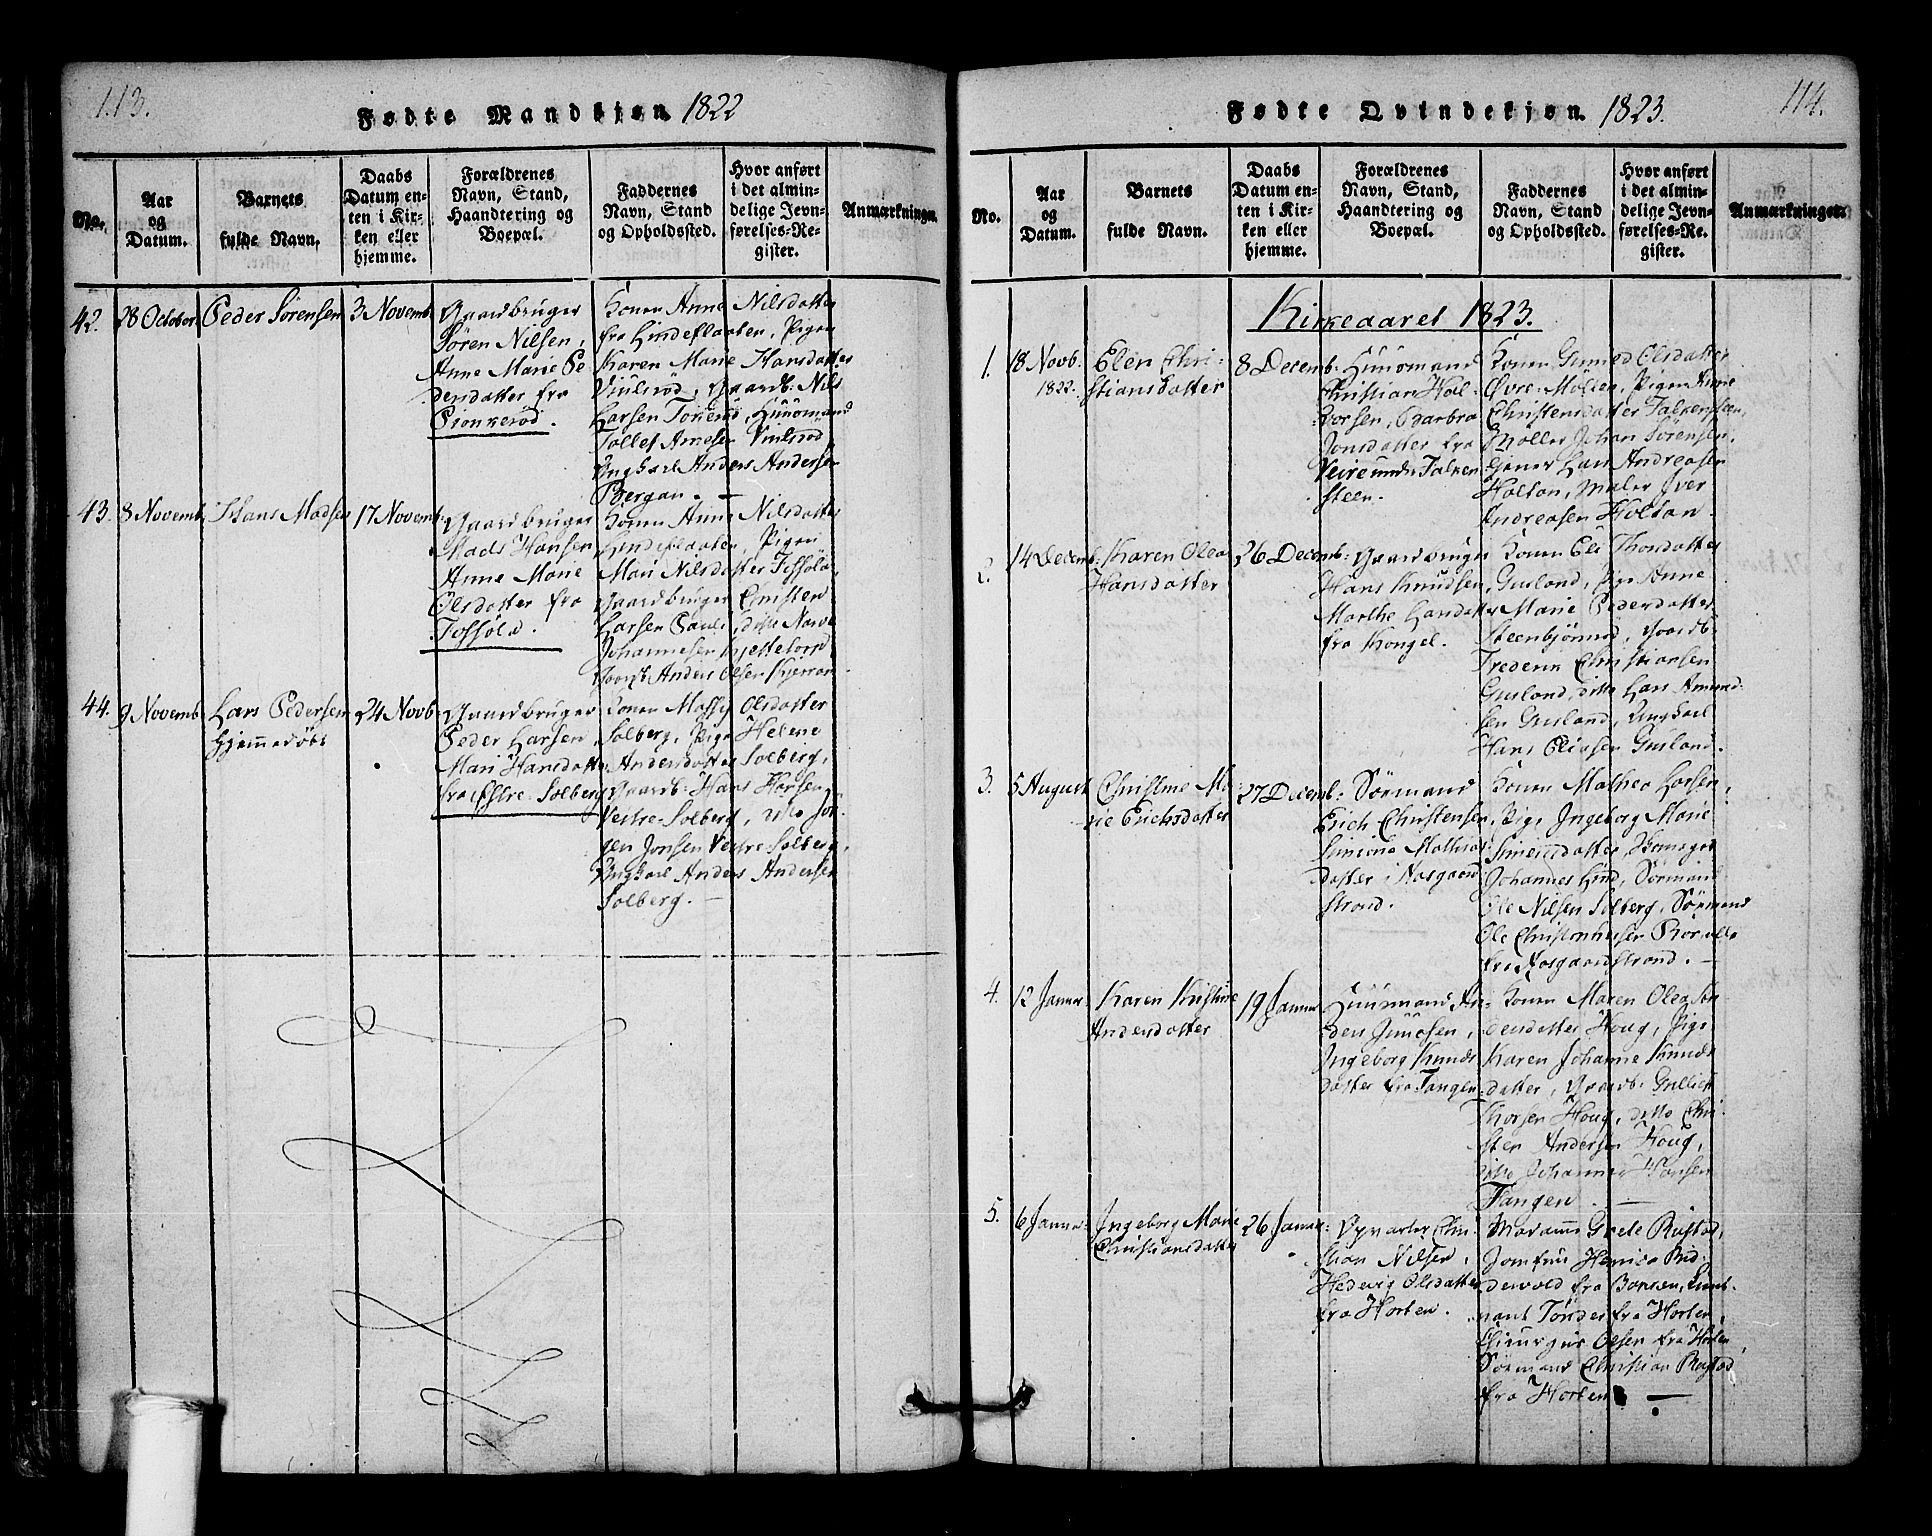 113.
Fødte Mandkjøn 1822
No.
Aar
og
Datum.
Barnets
fulde Navn.
Daabs
Datum en-
ten i Kir-
ken eller
hjemme.
Forældrenes
Navn, Stand,
Haandtering og
Boepæl.
Faddernes
Navn, Stand
og Opholdssted.
Hvor anført
i det almin-
delige Jevn-
førelses-Re-
gister.
Anmærkninger.
42. 28 October Peder Sörensen 3 Novemb.
Gaardbruger
Sören Nilsen,
Anne Marie Pe
dersdatter fra
Konen Anne Nilsdatter
fra Lindeflaaten, Pigen
Karen Marie Hansdatter
Gaardb: Nils
Larsen
Huusmand
Tollef Arnesen
Ungkarl Anders Andersen
Bergan. —
43. 8 Novemb. Hans Madsen 17 Novemb:
Gaardbruger
Mads Hansen
Anne Marie
Olsdatter fra
Fossöld.
Konen Anne Nilsdatter
Lindeflaaten, Pigen
Mari Nilsdatter Fossöld,
Gaardbruger Christen
Larsen ditto
Johannesen
Anders Olsen
44. 9 Novemb. Lars Pedersen
hjemmedöbt
24 Novb:
Gaardbruger
Peder Larsen
Mari Hansdatter
fra Estre-Solberg
Konen Olsdatter
Solberg, Pige Helene
Andersdatter Solberg,
Gaardb: Hans Hansen
Vestre-Solberg, ditto Jör-
gen Jonsen Vestre Solberg,
Ungkarl Anders Andersen
Solberg. —
114.
Fødte Qvindekjøn. 1823.
No.
Aar
og
Datum.
Barnets
fulde Navn.
Daabs
Datum en-
ten i Kir-
ken eller
hjemme.
Forældrenes
Navn, Stand,
Haandtering og
Boepæl.
Faddernes
Navn, Stand
og Opholdssted.
Hvor anført
i det almin-
delige Jevn-
førelses-Re-
gister.
Anmærkninger.
Kirkeaaret 1823.
1. 18 Novb.
1822.
Elen Chri-
stiansdatter
8 Decemb:
Huusmand
Christian Hal-
vorsen, Barbra
Jonsdatter fra
Falken
steen.
Konen Gunild Olsdatter
Övre-Mölsen, Pigen Anne
Christensdatter Falkensteen,
Möller Johan Sörensen,
Lars Andreasen
Holtan, Maler Iver
Andreasen Holtan.
2. 14 Decemb: Karen Olea
Hansdatter
26 Decemb:
Gaardbruger
Hans Knudsen
Marthe Larsdatter
fra Kongel.
Konen Eli Thorsdatter
Gusland, Pige Anne
Marie Pedersdatter
Steenbjörnrød, Gaardb:
Frederik Christiansen
Gusland, ditto Lars Amund-
sen Gusland, Ungkarl
Hans Eliasen Gusland.
3. 5 August Christine Ma
rie Erichsdatter
27 Decemb:
Sörmand
Erich Christensen,
Simona Mathias
datter i Aasgaard
strand.
Konen Mathea Larsen,
Pige Ingeborg Marie
Simensdatter,
Johannes Lind, Sörmand
Ole Nilsen Solberg, Sörmand
Ole Christophersen
fra Aasgaardstrand. —
4. 12 Janur Karen Kristine
Andersdatter
19 Janur
Huusmand An-
ders Juulsen,
Ingeborg Knuds
datter fra Tangen
Konen Maren Olea An-
dersdatter Houg, Pige
Karen Johanne Knuds
datter, Gaardb: Gullich
Thorsen Houg, ditto Chri-
sten Andersen Houg,
ditto Johannes Hansen
Tangen. —
5. 6 Janur: Ingeborg Marie
Christiansdatter
26 Janur:
Opvarter Chri-
stian Nilsen,
Hedevig Olsdatter
fra Horten.
Madame Grete Rustad,
Jomfrue Henrica Bud
devold fra Borreen, Lieut-
nant Tönder fra Horten,
Chirurgus Olsen fra Horten,
Sörmand Christian Rustad
fra Horten —